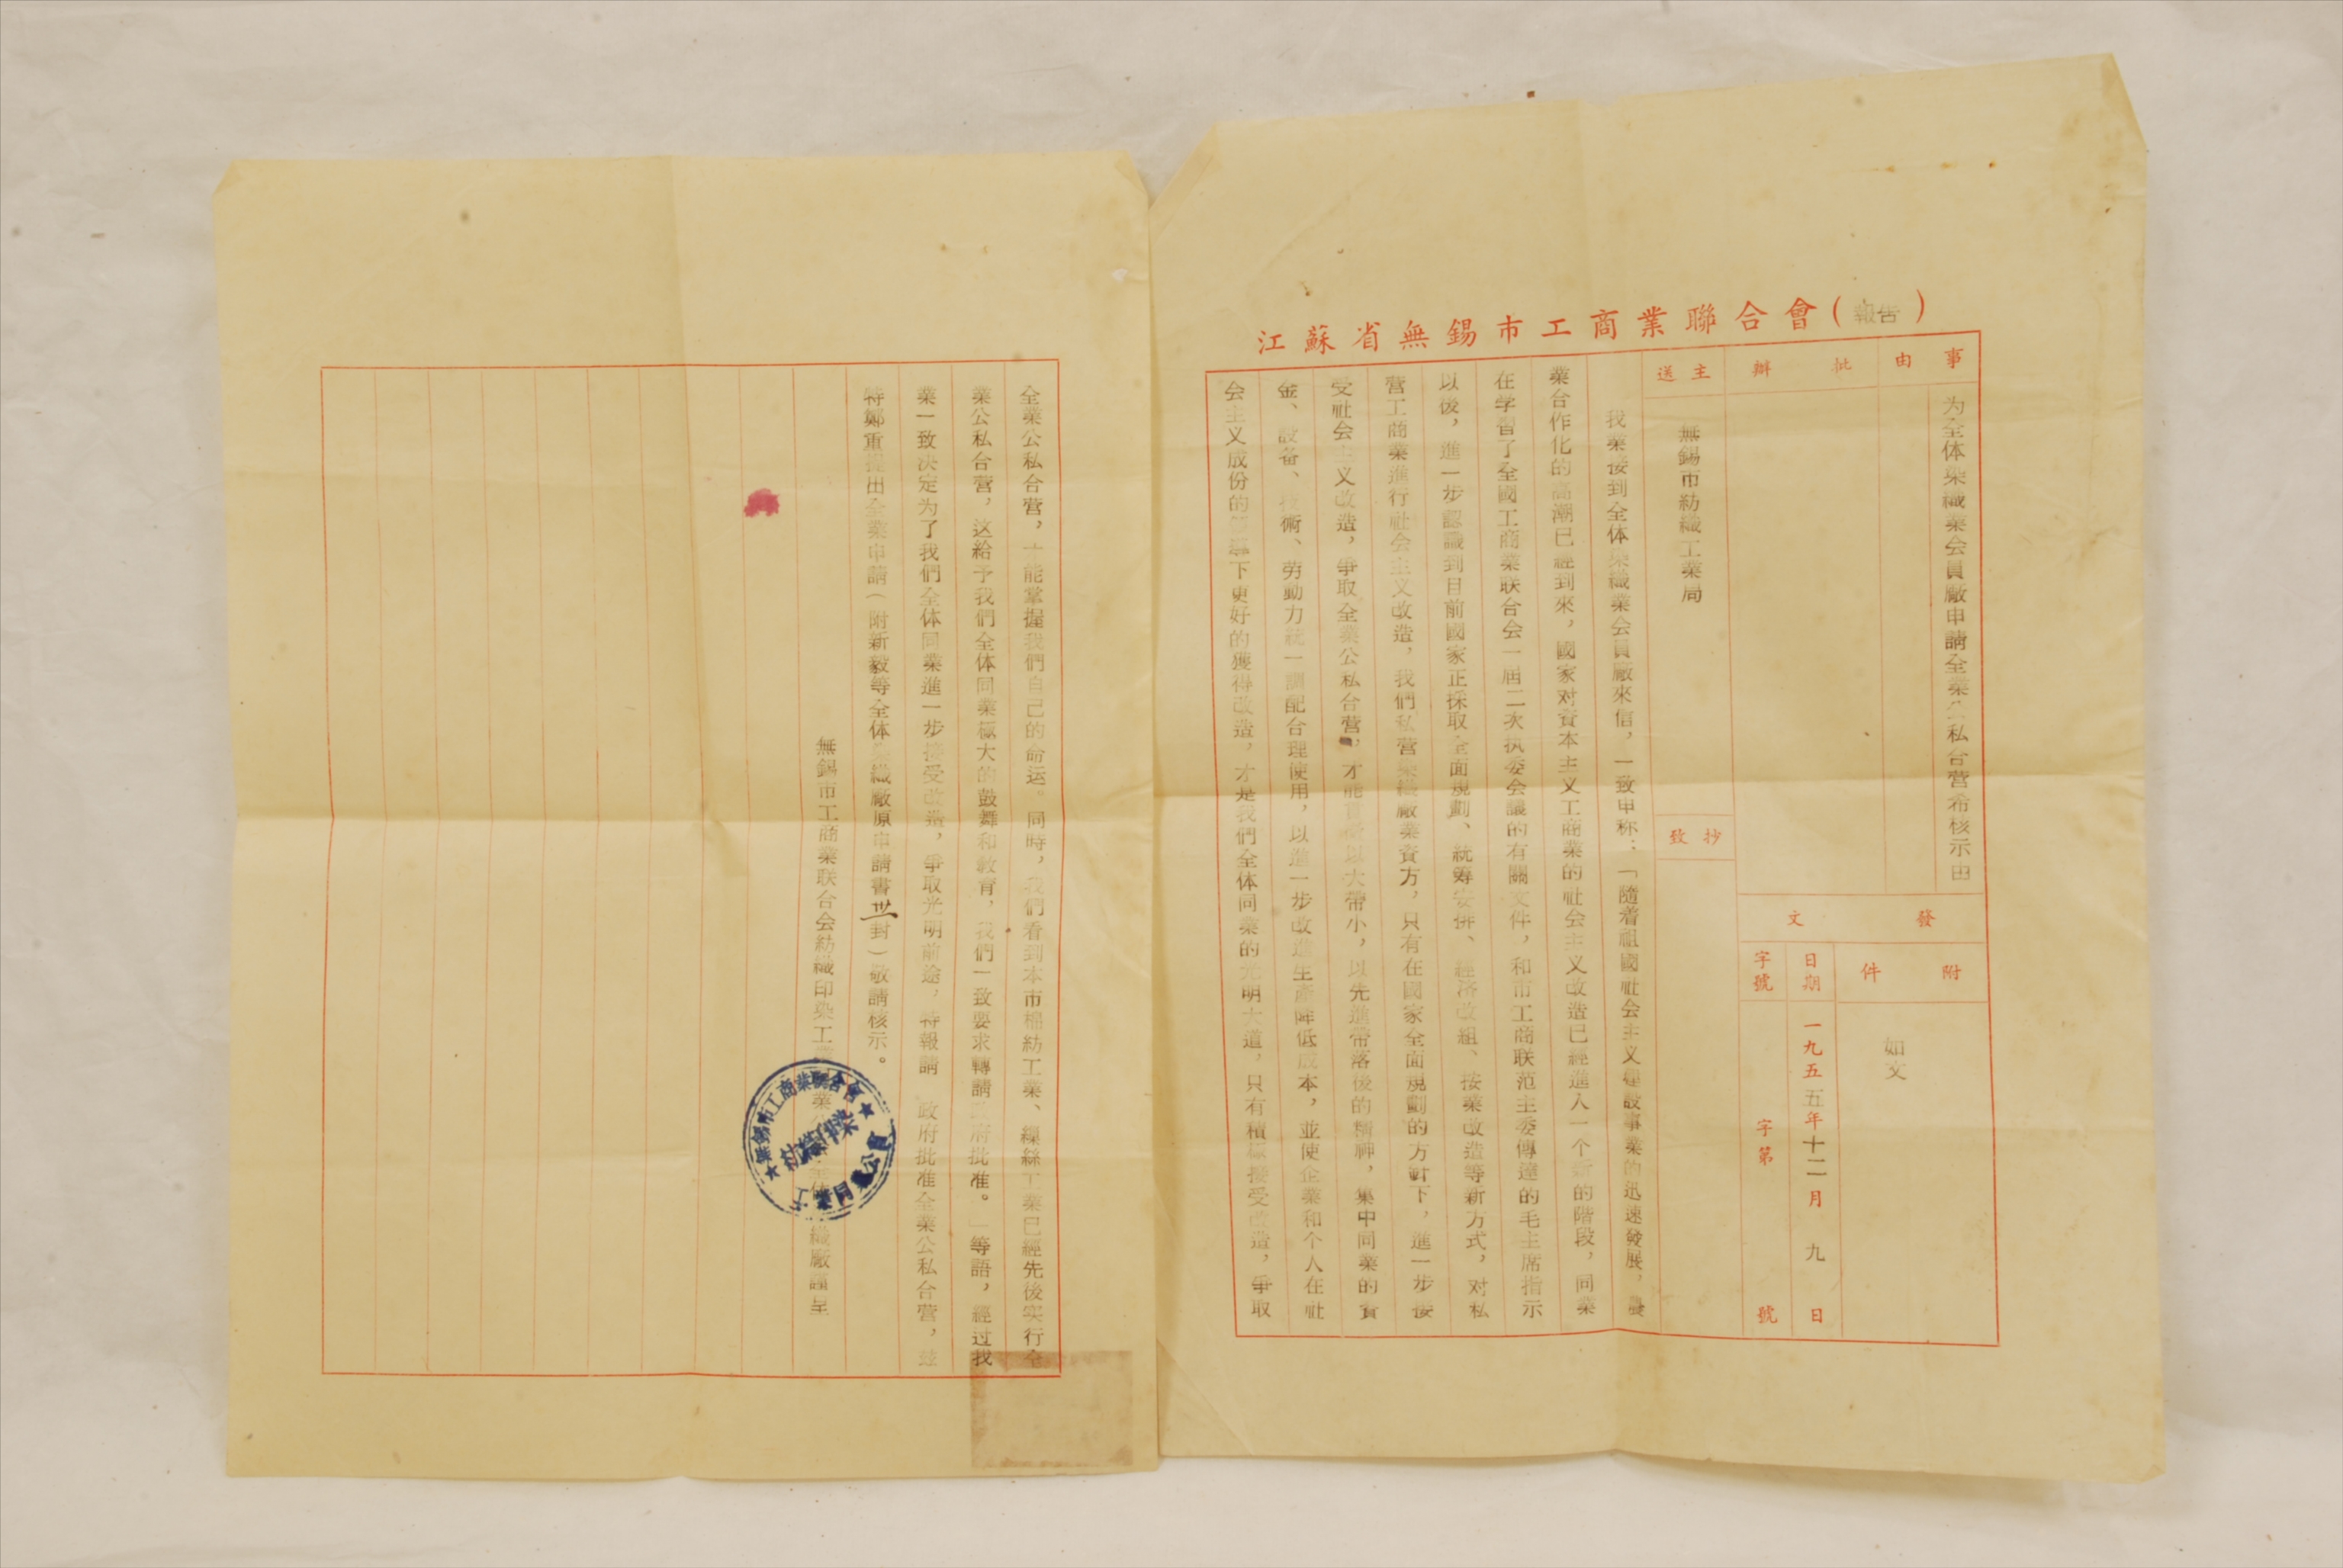 江蘇省無錫市工商業聯合會(報告)
事由
为全体染織業会員廠申請全業公私合营希核示由
批辦
發文
附件
如文
日期
一九五五年十二月九日
字號
字第 號
主送
無錫市紡織工業局
抄致
我業接到全体染織業会員廠來信,一致申称:「隨着祖國社会主义建設事業的迅速發展,農
業合作化的高潮已經到來,國家对資本主义工商業的社会主义改造已經進入一个新的階段,同業
在学習了全國工商業联合会一届二次执委会議的有關文件,和市工商联范主委傳達的毛主席指示
以後,進一步認識到目前國家正採取全面規劃、統筹安排、經济改組、按業改造等新方式,对私
营工商業進行社会主义改造,我們私营染織廠業資方,只有在國家全面規劃的方針下,進一步接
受社会主义改造,爭取全業公私合营,才能貫徹以大帶小,以先進帶落後的精神,集中同業的資
金、設备、技術、劳動力統一調配合理使用,以進一步改進生產降低成本,並使企業和个人在社
会主义成份的領導下更好的獲得改造,才是我們全体同業的光明大道,只有積極接受改造,爭取
全業公私合营,才能掌握我們自己的命运。同時,我們看到本市棉紡工業、繅絲工業已經先後实行全
業公私合营,这給予我們全体同業極大的鼓舞和教育,我們一致要求轉請政府批准。」等語,經过我
業一致决定为了我們全体同業進一步接受改造,爭取光明前途,特報請 政府批准全業公私合营,茲
特鄭重提出全業申請(附新毅等全体染織廠原申請書卅封)敬請核示。
無錫市工商業联合会紡織印染工業 織廠謹呈
無錫市工商業聯合會
紡織印染
工業同業公會